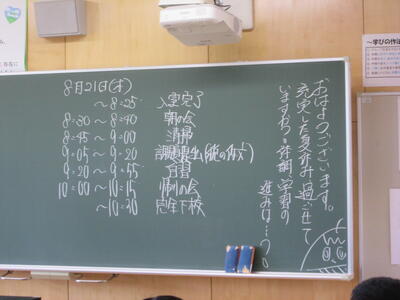 8月21日(木)
～8:25 入室完了
8:30～8:40 朝の会
8:45～9:00 清掃
9:05～9:20
9:20～9:55 学習
10:00～10:15 帰りの会
～10:30 完全下校
おはようございます。
充実した夏休み過ごせて
いますか？体調、学習の
進みは…？
～学びの作法